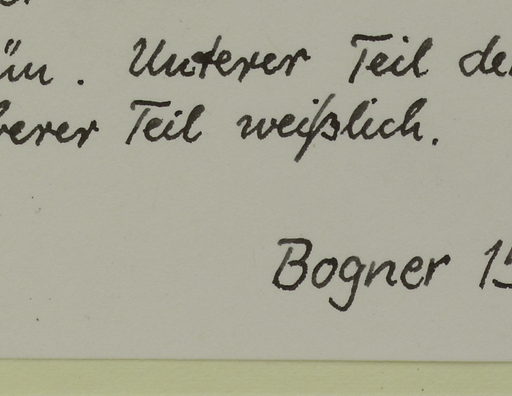 ün. Unterer Teil de
berer Teil weißlich.
Bogner 19